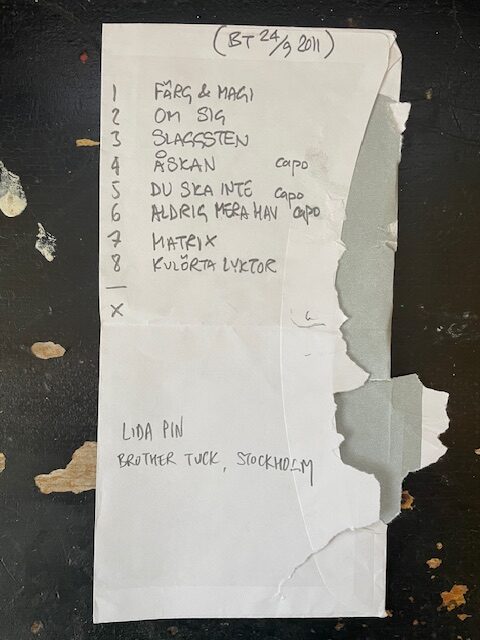 (BT 24/9 2011)
1 FÄRG & MAGI
2 OM SIG
3 SLAGGSTEN
4 ÅSKAN capo
5 DU SKA INTE capo
6 ALDRIG MERA HAV capo
7 MATRIX
8 KULÖRTA LYKTOR
—
X
LIDA PIN
BROTHER TUCK, STOCKHOLM